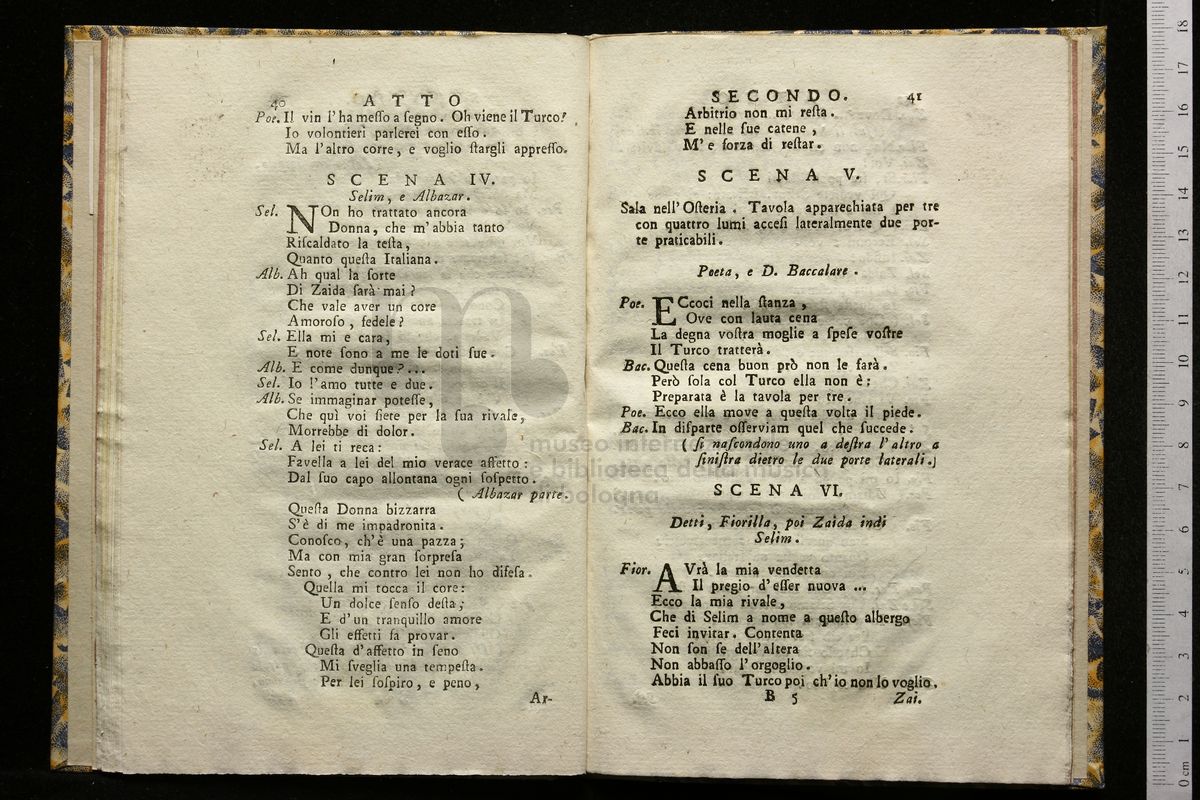 40 ATTO
Poe. Il vin l'ha meſſo a ſegno. Oh viene il Turco!
Io volontieri parlerei con eſſo.
Ma l'altro corre, e voglio ſtargli appreſſo.
SCENA IV.
Selim, e Albazar.
Sel. NOn ho trattato ancora
Donna, che m'abbia tanto
Riſcaldato la teſta,
Quanto queſta Italiana.
Alb. Ah qual la ſorte
Di Zaida ſarà mai?
Che vale aver un core
Amoroſo, fedele?
Sel. Ella mi e cara,
E note ſono a me le doti ſue.
Alb. E come dunque?...
Sel. Io l'amo tutte e due.
Alb. Se immaginar poteſſe,
Che quì voi ſiete per la ſua rivale,
Morrebbe di dolor.
Sel. A lei ti reca:
Favella a lei del mio verace affetto:
Dal ſuo capo allontana ogni ſoſpetto.
( Albazar parte.
Queſta Donna bizzarra
S'è di me impadronita.
Conoſco, ch'è una pazza;
Ma con mia gran ſorpreſa
Sento, che contro lei non ho difeſa.
Quella mi tocca il core:
Un dolce ſenſo deſta;
E d'un tranquillo amore
Gli effetti fa provar.
Queſta d'affetto in ſeno
Mi ſveglia una tempeſta.
Per lei ſoſpiro, e peno,
Ar-
SECONDO. 41
Arbitrio non mi reſta.
E nelle ſue catene,
M'e forza di reſtar.
SCENA V.
Sala nell'Oſteria. Tavola apparechiata per tre
con quattro lumi acceſi lateralmente due por-
te praticabili.
Poeta, e D. Baccalare.
Poe. ECcoci nella ſtanza,
Ove con lauta cena
La degna voſtra moglie a ſpeſe voſtre
Il Turco tratterà.
Bac. Queſta cena buon prò non le farà.
Però ſola col Turco ella non è:
Preparata è la tavola per tre.
Poe. Ecco ella move a queſta volta il piede.
Bac. In diſparte oſſerviam quel che ſuccede.
( ſi naſcondono uno a deſtra l'altro a
ſiniſtra dietro le due porte laterali.)
SCENA VI.
Detti, Fiorilla, poi Zaida indi
Selim.
Fior. AVrà la mia vendetta
Il pregio d'eſſer nuova ...
Ecco la mia rivale,
Che di Selim a nome a queſto albergo
Feci invitar. Contenta
Non ſon ſe dell'altera
Non abbaſſo l'orgoglio.
Abbia il ſuo Turco poi ch'io non lo voglio.
B 5 Zai.
museo inter
e biblioteca della musica
bologna
0 cm 1 2 3 4 5 6 7 8 9 10 11 12 13 14 15 16 17 18